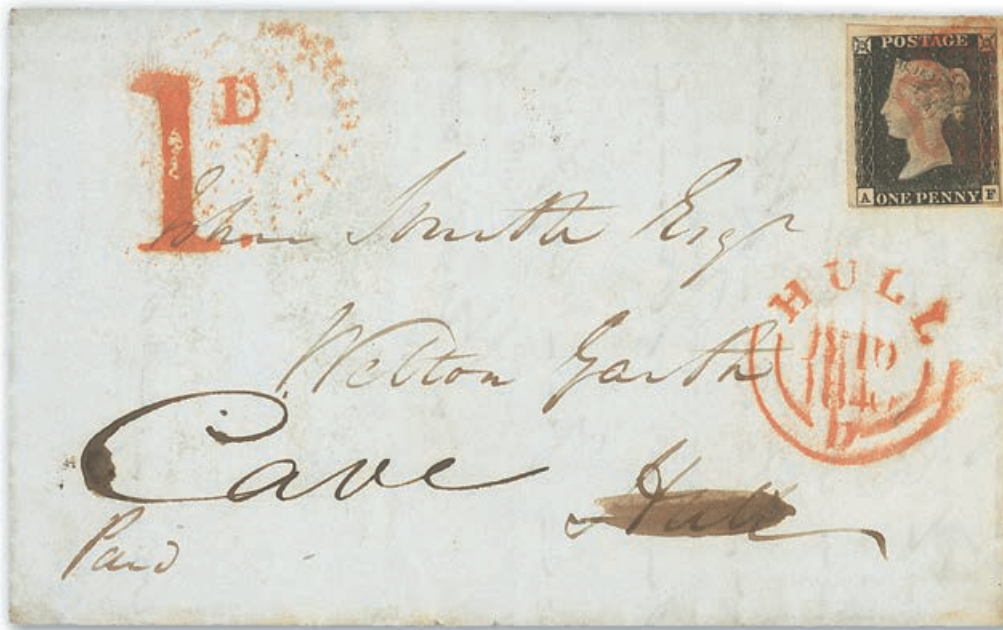 1D
POSTAGE
A ONE PENNY. F
John Smith Esqr
HULL
1840
D
Welton Garth
Cave
Hull
Paid